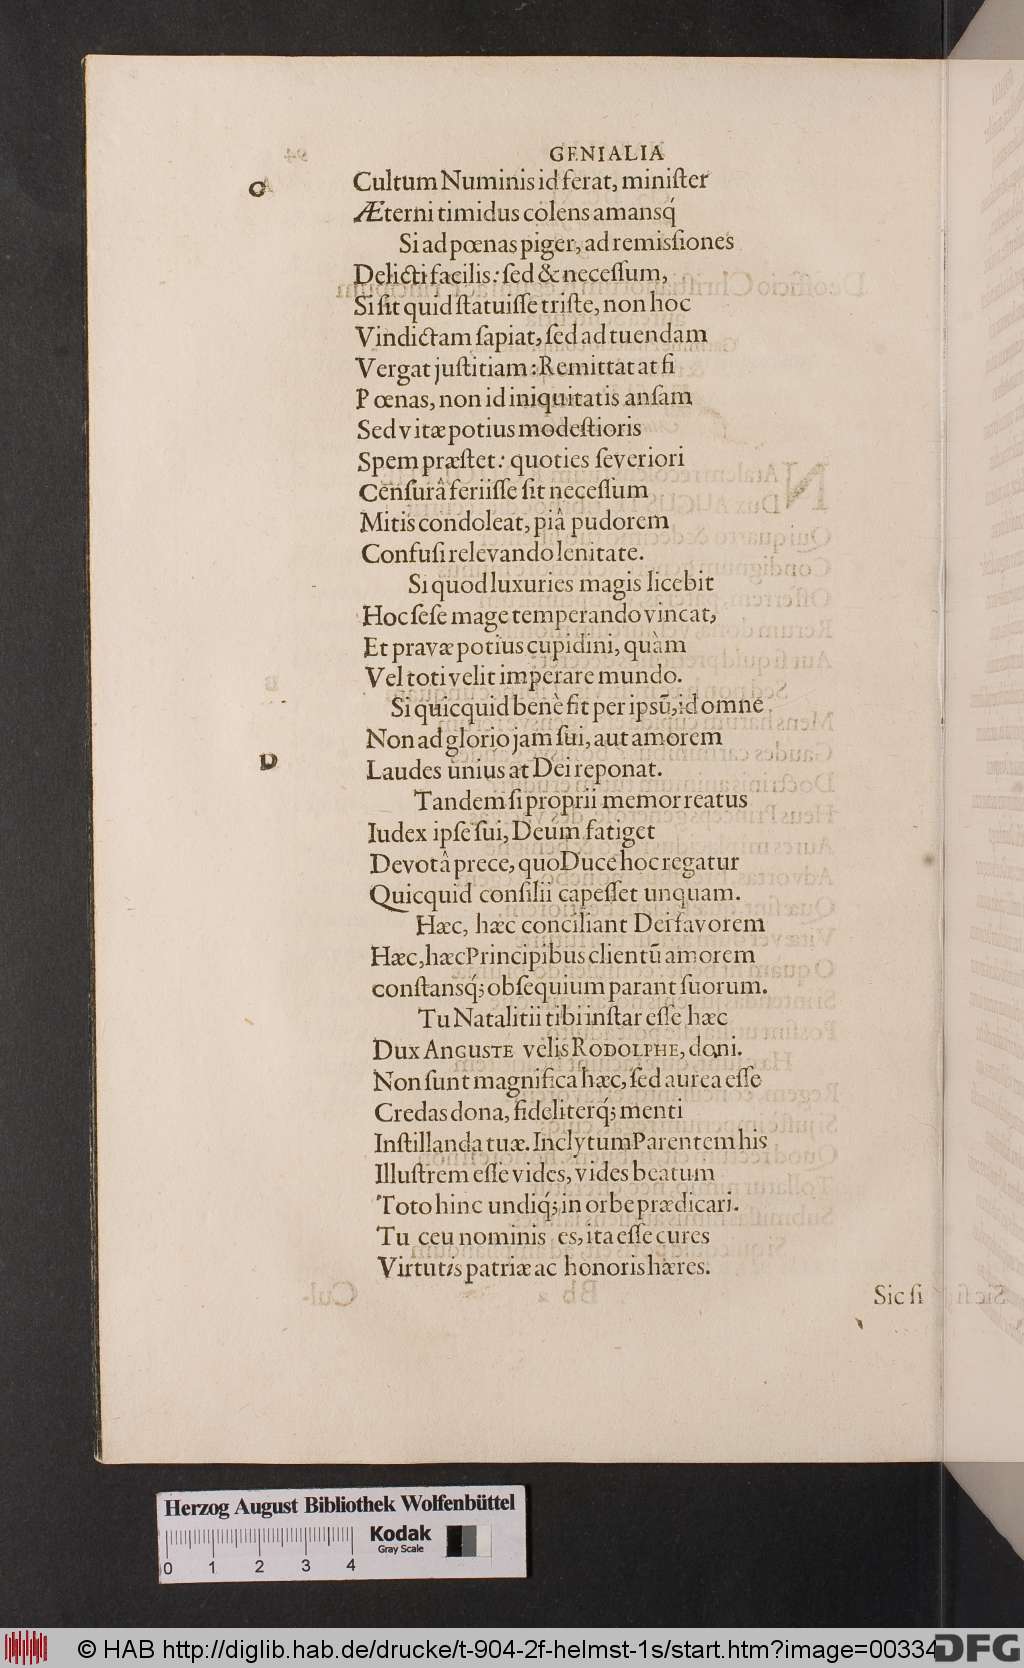 GENIALIA
C
Cultum Numinis id ferat, miniſter
Æterni timidus colens amansq́
Si ad pœnas piger, ad remisſiones
Delicti facilis: ſed & neceſſum,
Si ſit quid ſtatuiſſe triſte, non hoc
Vindictam ſapiat, ſed ad tuendam
Vergat juſtitiam: Remittat at ſi
Pœnas, non id iniquitatis anſam
Sed vitæ potius modeſtioris
Spem præſtet: quoties ſeveriori
Cenſurâ feriiſſe ſit neceſſum
Mitis condoleat, piâ pudorem
Confuſi relevando lenitate.
Si quod luxuries magis licebit
Hoc ſeſe mage temperando vincat,
Et pravæ potius cupidini, quàm
Vel toti velit imperare mundo.
Si quicquid benè fit per ipsũ, id omne
Non ad glorio jam ſui, aut amorem
D
Laudes unius at Dei reponat.
Tandem ſi proprii memor reatus
Iudex ipſe ſui, Deum fatiget
Devotâ prece, quo Duce hoc regatur
Quicquid conſilii capeſſet unquam.
Hæc, hæc conciliant Dei favorem
Hæc, hæc Principibus clientũ amorem
conſtansq́; obſequium parant ſuorum.
Tu Natalitii tibi inſtar eſſe hæc
Dux AUGUSTE velis RODOLPHE, doni.
Non ſunt magnifica hæc, ſed aurea eſſe
Credas dona, fideliterq́; menti
Inſtillanda tuæ. Inclytum Parentem his
Illuſtrem eſſe vides, vides beatum
Toto hinc undiq́; in orbe prædicari.
Tu ceu nominis es, ita eſſe cures
Virtutis patriæ ac honoris hæres.
Sic ſi
Herzog August Bibliothek Wolfenbüttel
Kodak
Gray Scale
0 1 2 3 4
© HAB http://diglib.hab.de/drucke/t-904-2f-helmst-1s/start.htm?image=00334
DFG